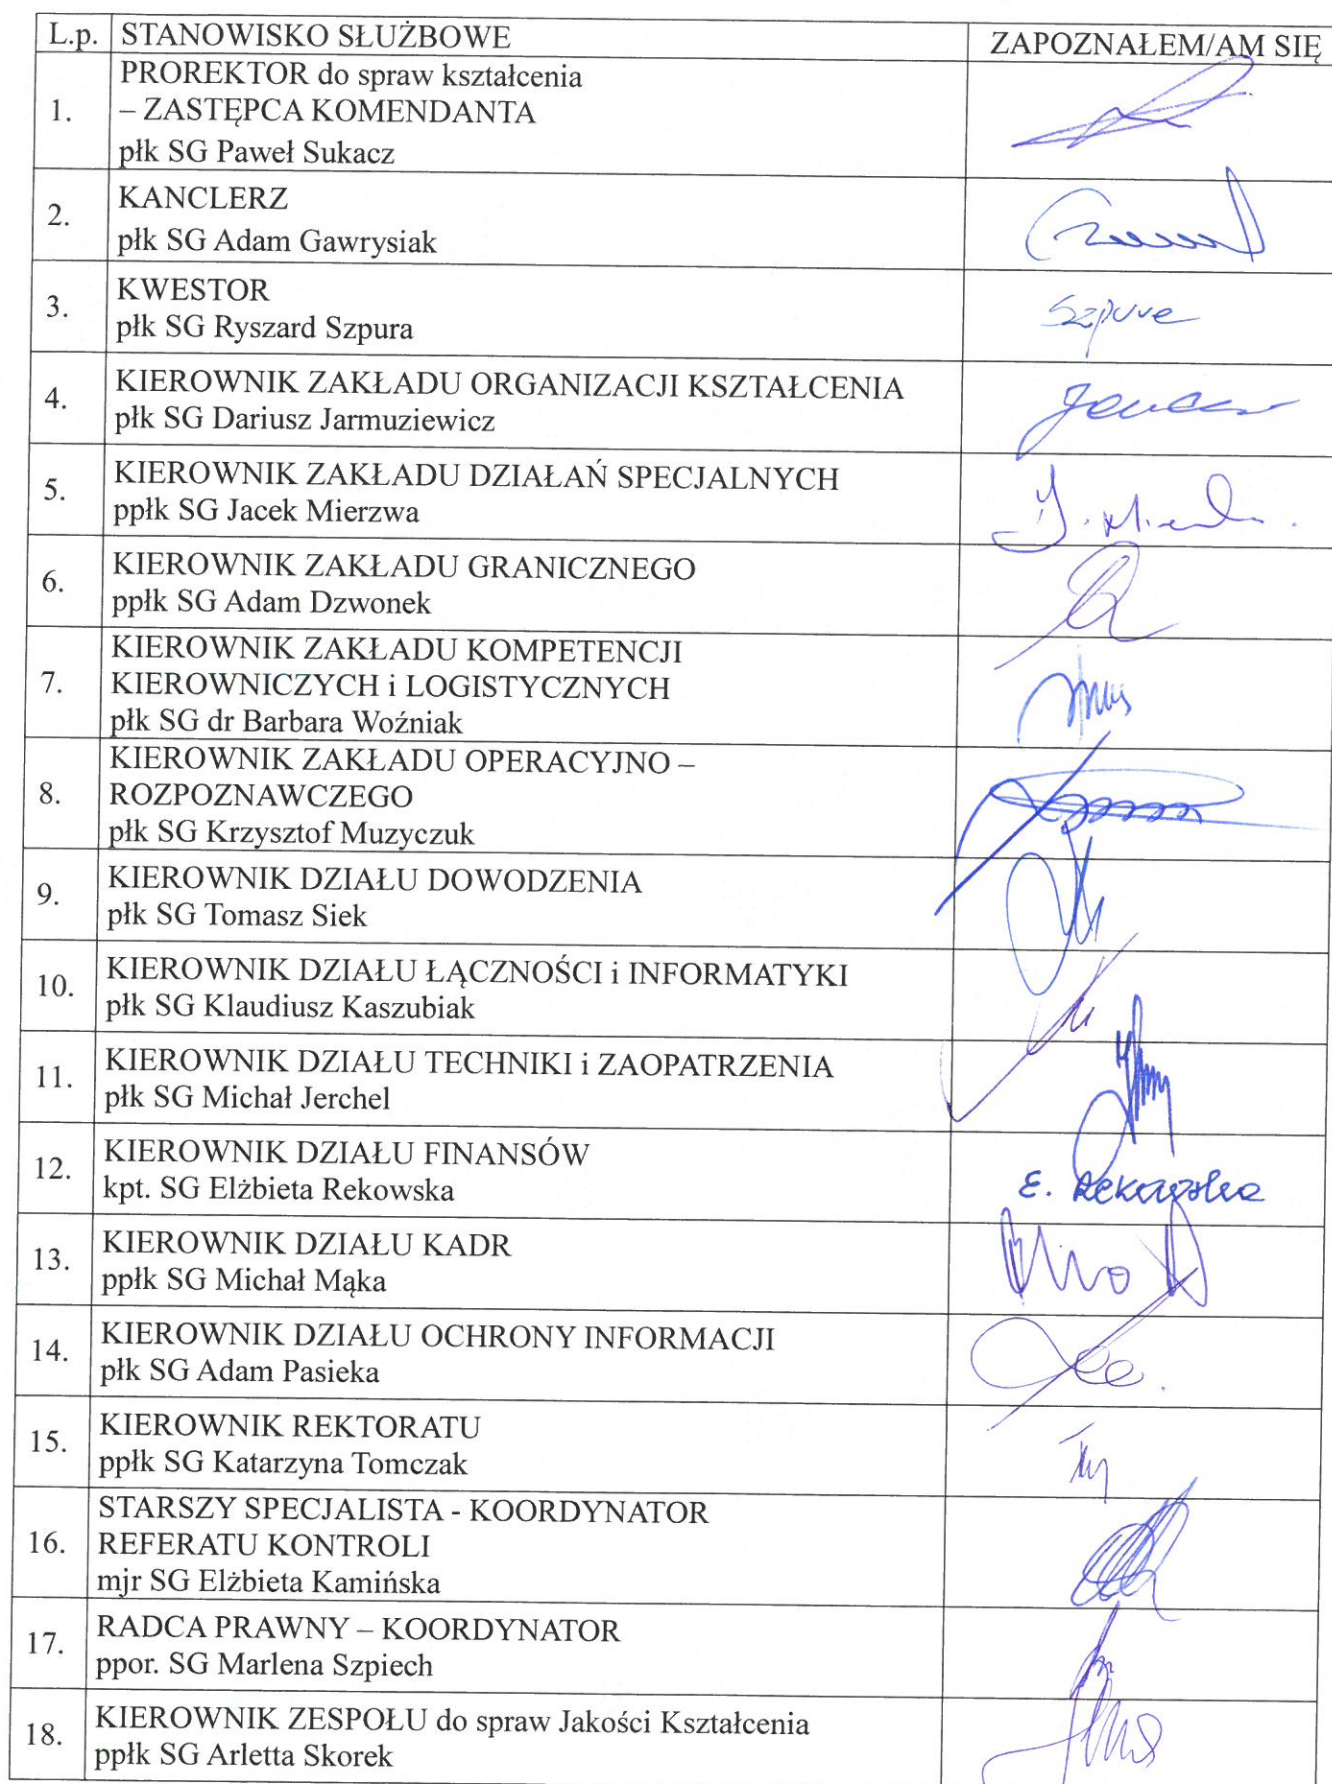 L.p. STANOWISKO SŁUŻBOWE ZAPOZNAŁEM/AM SIĘ
1. PROREKTOR do spraw kształcenia
– ZASTĘPCA KOMENDANTA
płk SG Paweł Sukacz
2. KANCLERZ
płk SG Adam Gawrysiak
3. KWESTOR
płk SG Ryszard Szpura
4. KIEROWNIK ZAKŁADU ORGANIZACJI KSZTAŁCENIA
płk SG Dariusz Jarmuziewicz
5. KIEROWNIK ZAKŁADU DZIAŁAŃ SPECJALNYCH
ppłk SG Jacek Mierzwa
6. KIEROWNIK ZAKŁADU GRANICZNEGO
ppłk SG Adam Dzwonek
7. KIEROWNIK ZAKŁADU KOMPETENCJI
KIEROWNICZYCH i LOGISTYCZNYCH
płk SG dr Barbara Woźniak
8. KIEROWNIK ZAKŁADU OPERACYJNO –
ROZPOZNAWCZEGO
płk SG Krzysztof Muzyczuk
9. KIEROWNIK DZIAŁU DOWODZENIA
płk SG Tomasz Siek
10. KIEROWNIK DZIAŁU ŁĄCZNOŚCI i INFORMATYKI
płk SG Klaudiusz Kaszubiak
11. KIEROWNIK DZIAŁU TECHNIKI i ZAOPATRZENIA
płk SG Michał Jerchel
12. KIEROWNIK DZIAŁU FINANSÓW
kpt. SG Elżbieta Rekowska E. Rekowska
13. KIEROWNIK DZIAŁU KADR
ppłk SG Michał Mąka
14. KIEROWNIK DZIAŁU OCHRONY INFORMACJI
płk SG Adam Pasieka
15. KIEROWNIK REKTORATU
ppłk SG Katarzyna Tomczak
16. STARSZY SPECJALISTA - KOORDYNATOR
REFERATU KONTROLI
mjr SG Elżbieta Kamińska
17. RADCA PRAWNY – KOORDYNATOR
ppor. SG Marlena Szpiech
18. KIEROWNIK ZESPOŁU do spraw Jakości Kształcenia
ppłk SG Arletta Skorek